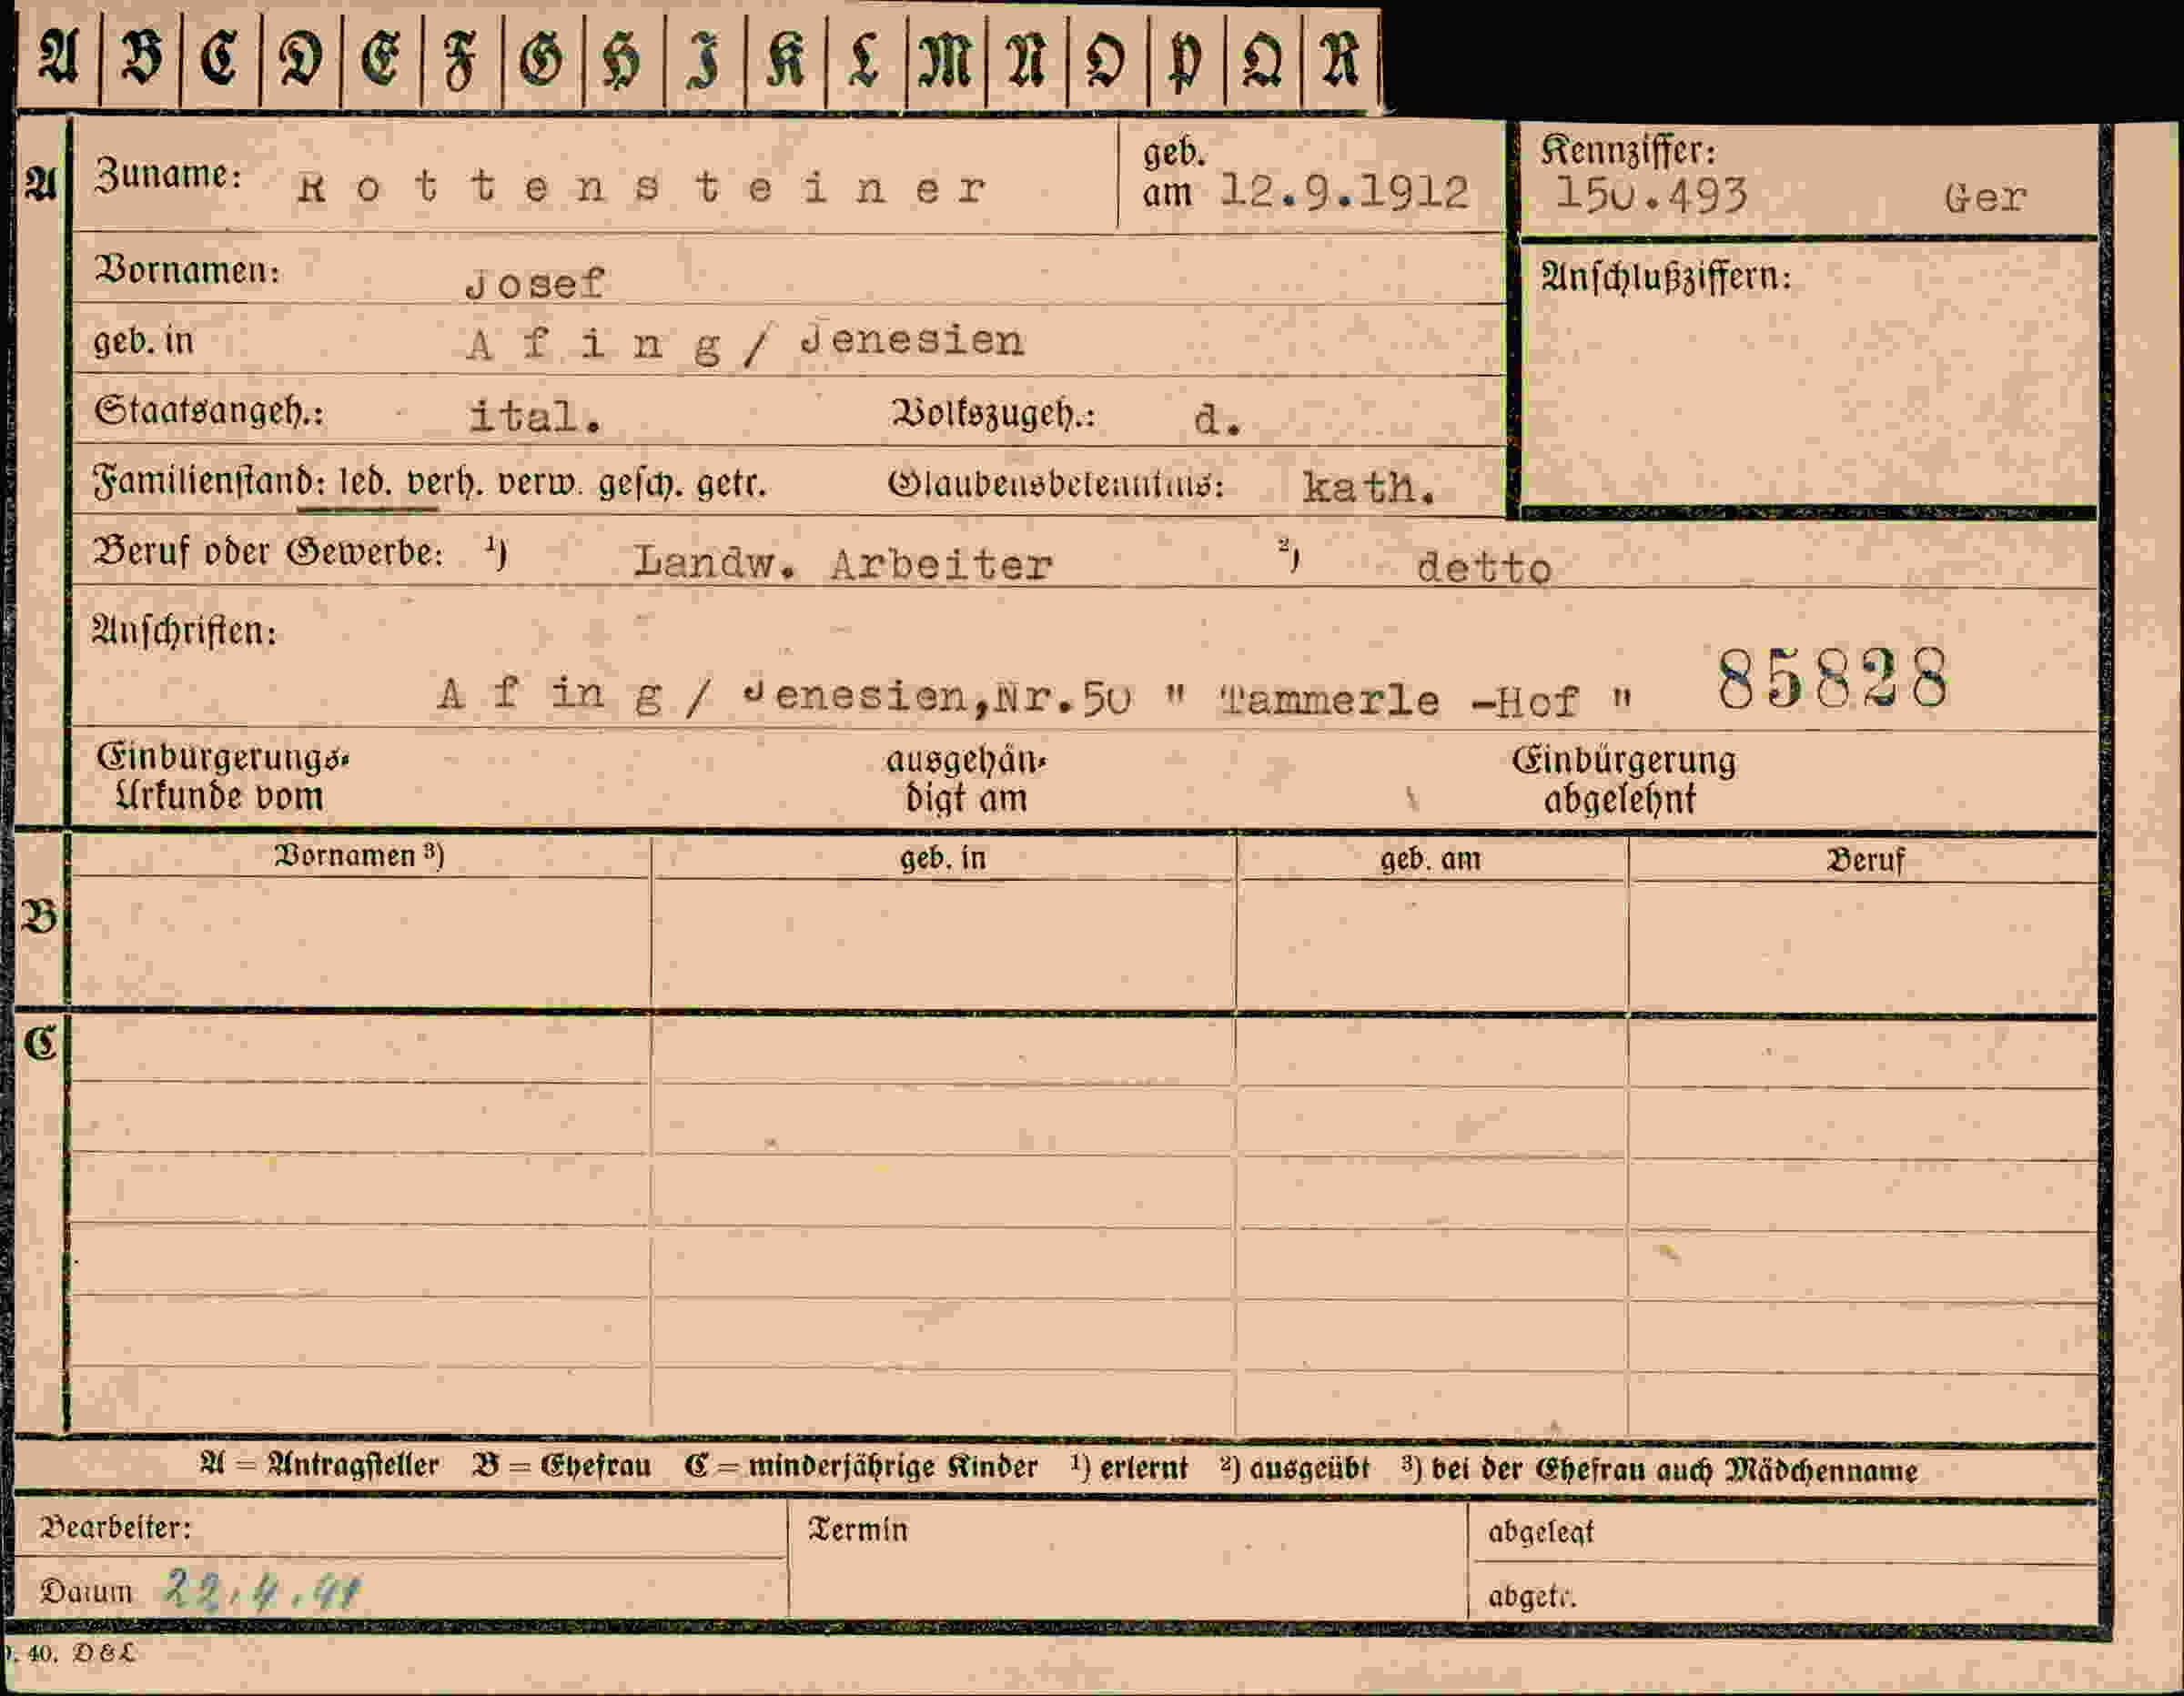 A B C D E F G H I K L M N O P Q R
A Zuname: Rottensteiner geb. am 12.9.1912 Kennziffer: 150.493 Ger
Vornamen: Josef Anschlußziffern:
geb. in Afing/ Jenesien
Staatsangeh.: ital. Volkszugeh.: d.
Familienstand: led. verh. verw. gesch. getr. Glaubensbekenntnis: kath.
Beruf oder Gewerbe: ¹) Landw. Arbeiter ²) detto
Anschriften:
Afing/ Jenesien,Nr.50 " Tammerle -Hof " 85828
Einbürgerungs- ausgehän- Einbürgerung
Urkunde vom digt am abgelehnt
Vornamen ³) geb. in geb. am Beruf
B
C
A = Antragsteller B = Ehefrau C = minderjährige Kinder ¹) erlernt ²) ausgeübt ³) bei der Ehefrau auch Mädchenname
Bearbeiter: Termin abgelegt
Datum 22.4.41 abgetr.
. 40. D & L